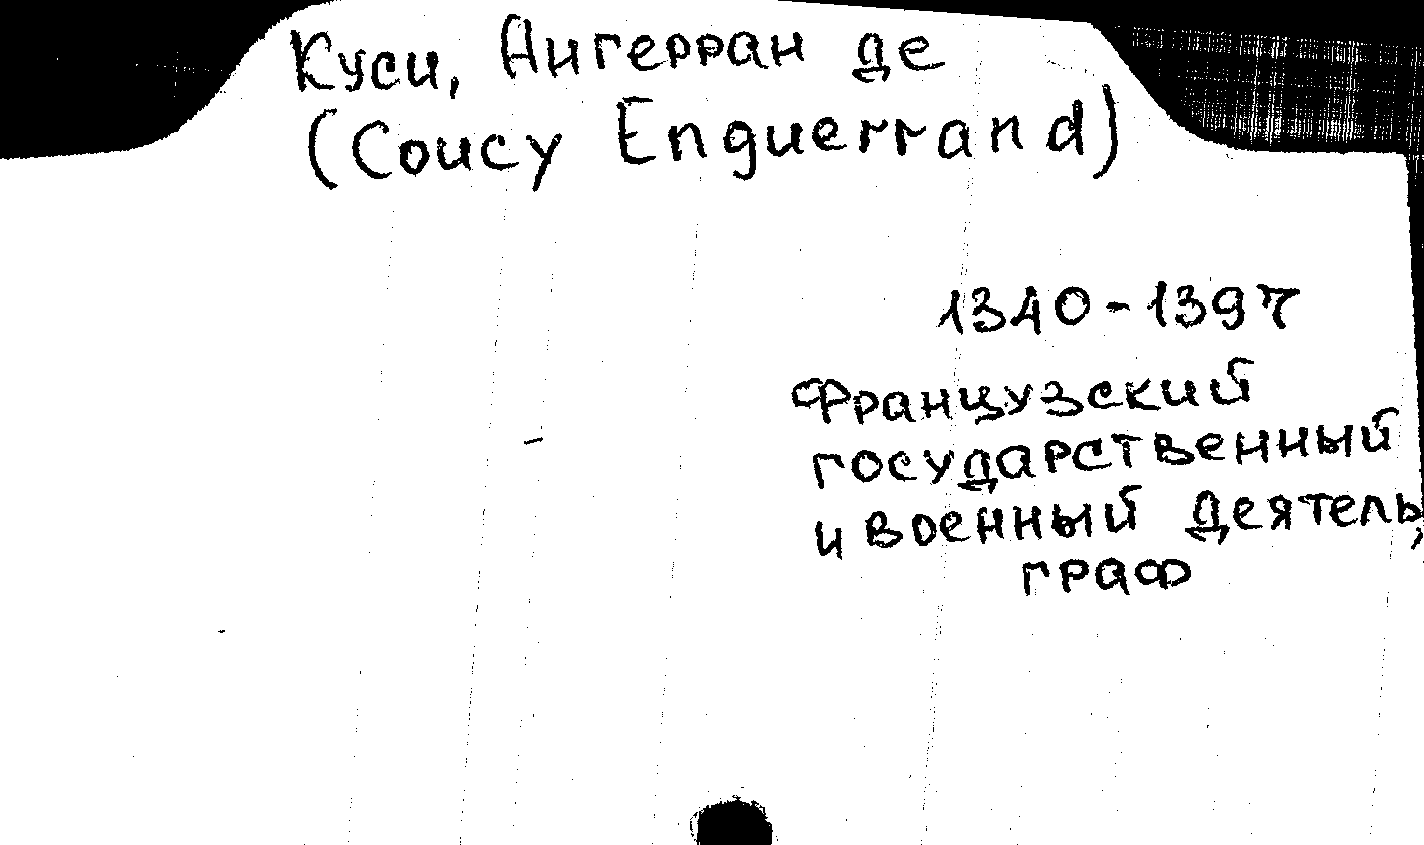 Куси, Ангерран де
(Coucy Enguerrand)
1340-1397
Французский
государственный
и военный деятель,
граф